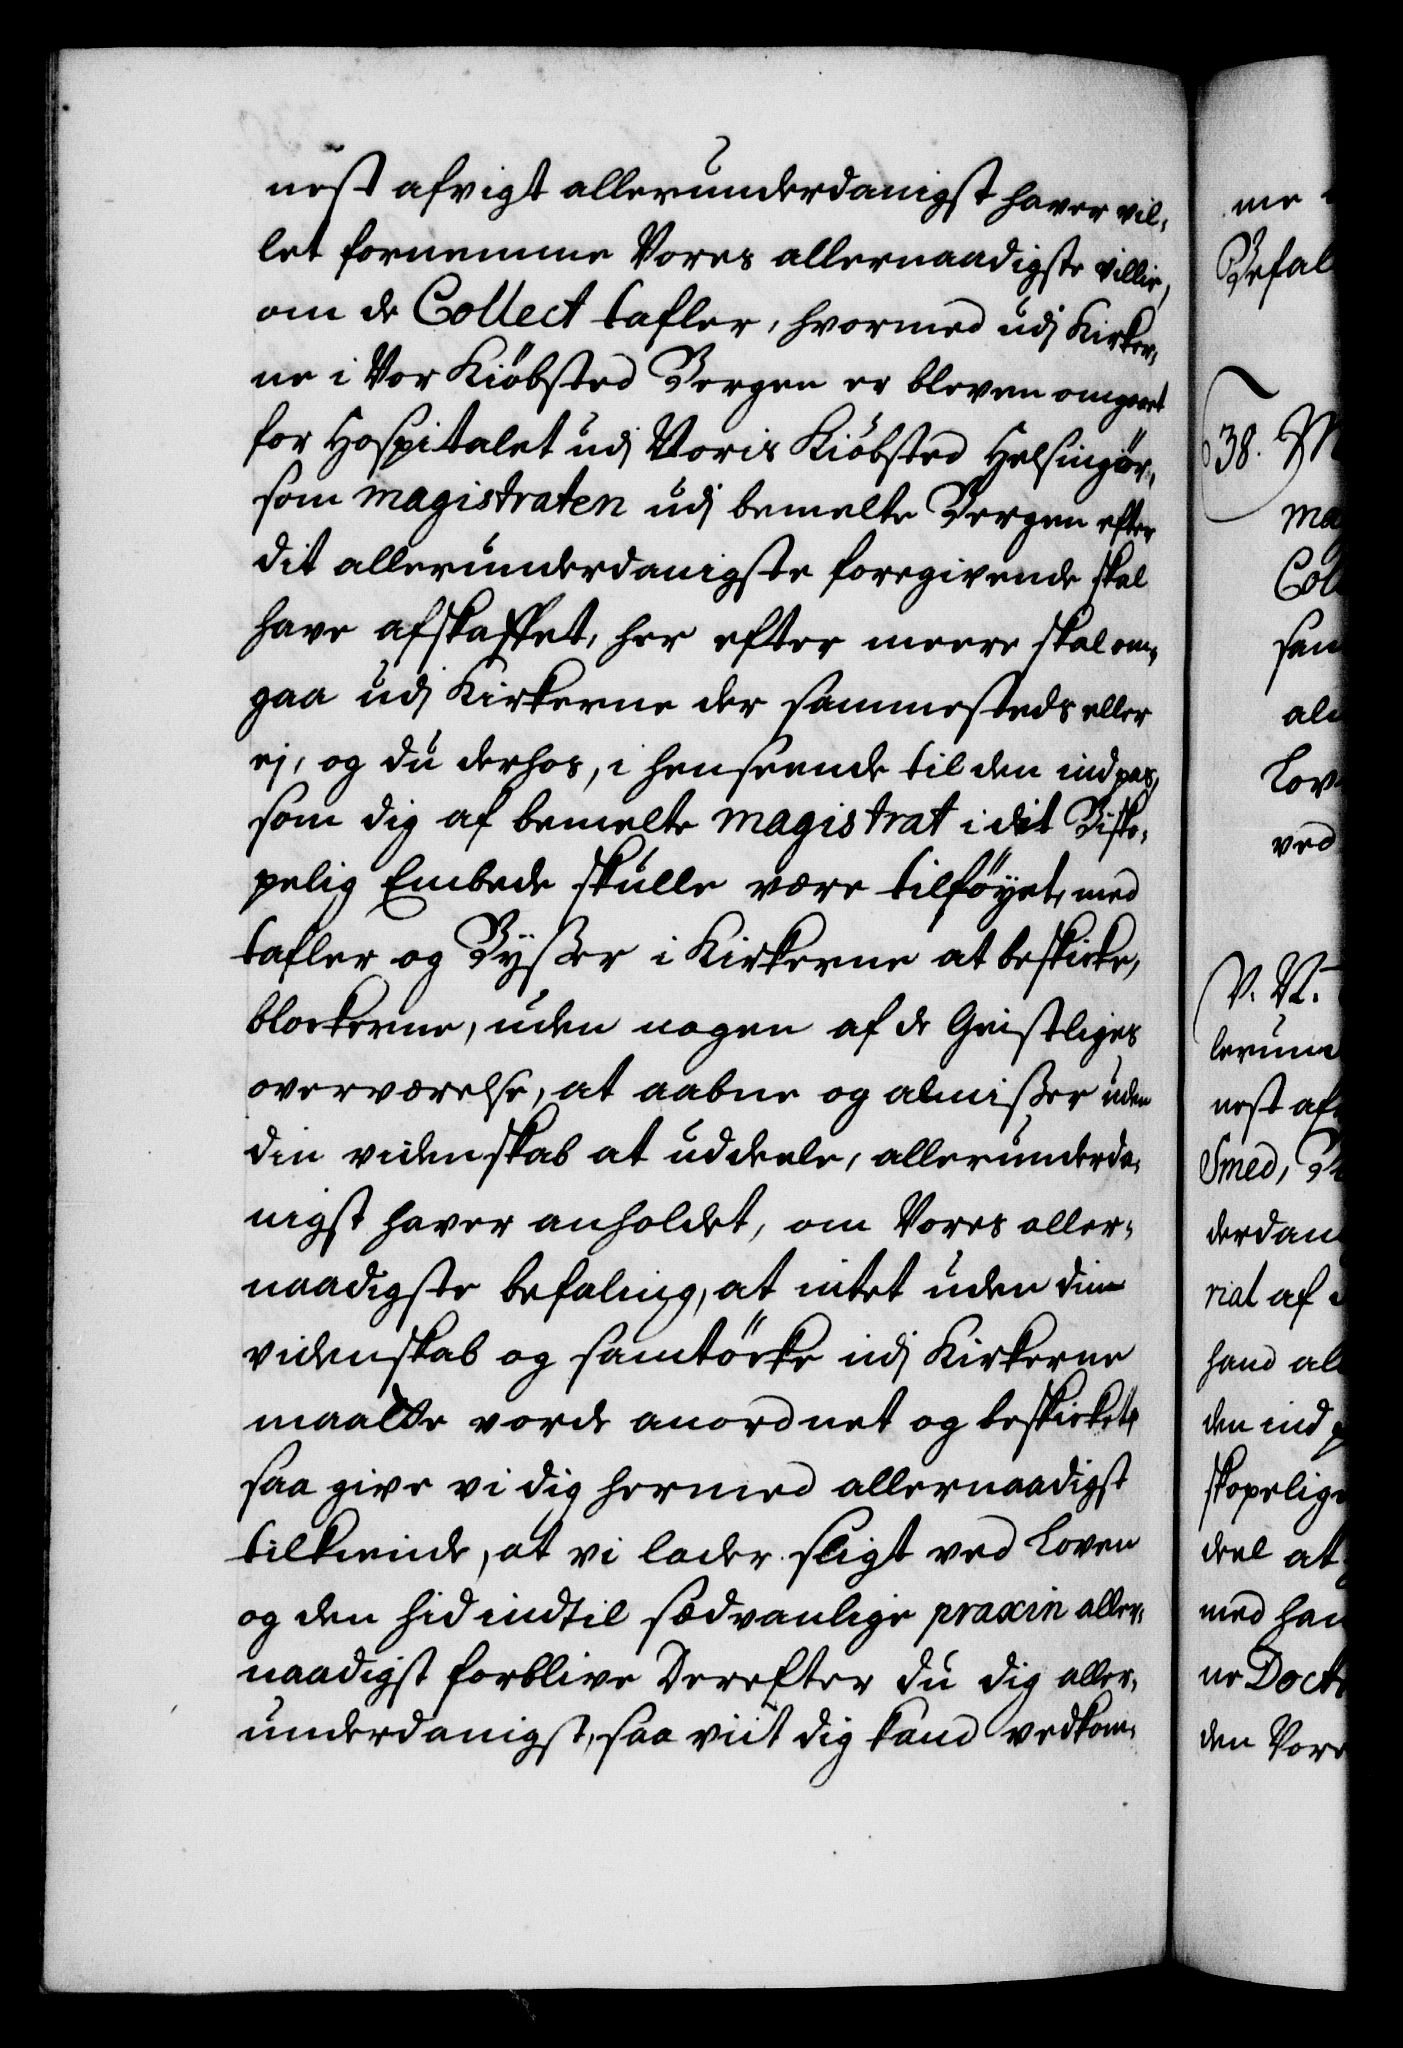 nest afvigt allerunderdanigst haver vil-
let fornemme Vores allernaadigste villie,
om de Collect tafler, hvormed udj Kirker-
ne i Vor Kiöbsted Bergen er bleven omgaaet
for Hospitalet udj Voris Kiöbsted Helsingör,
som magistraten udj bemelte Bergen efter
dit allerunderdanigste foregivende skal
have afskaffet, her efter meere skal om-
gaa udj Kirkerne der sammesteds eller
ej, og du derhos, i henseende til den indpas,
som dig af bemelte magistrat i dit Bisko-
pelig Embede skulle være tilföyet, med
tafler og Bysser i Kirkerne at beskicke,
blockerne, uden nogen af de Geistliges
overværelse, at aabne og almisser uden
din videnskab at uddeele, allerunderda-
nigst haver anholdet, om Vores aller-
naadigste befaling, at intet uden din
videnskab og samtöcke udj Kirkerne
maatte vorde anordnet og beskicket;
saa give vi dig hermed allernaadigst
tilkiende, at vi lader sligt ved Loven
og den hid indtil sædvanlige praxin aller-
naadigst forblive Derefter du dig aller-
underdanigst, saa viit dig kand vedkom-
me
Befal
38. M
ma
Col
sam
al
Lov
ved
V. V.
lerun
nest af
Smed,
derdan
riat af
hand al
den ind
skopelig
deel at
med han
ne Doct
den Vor